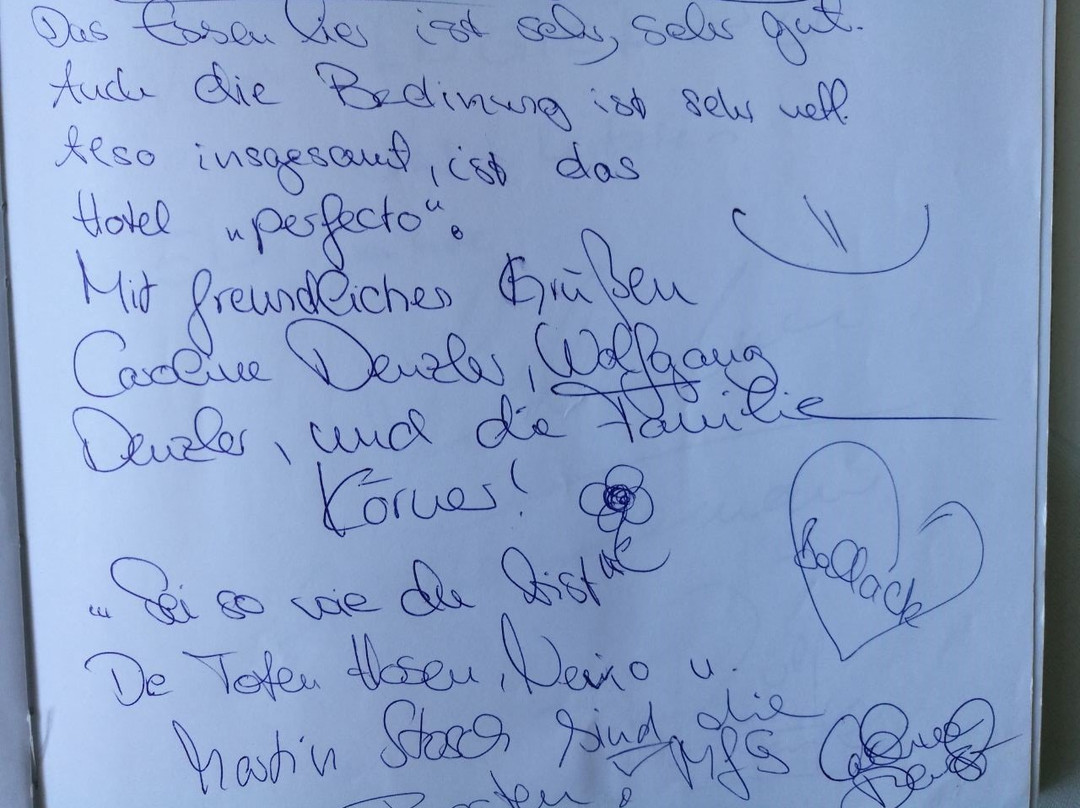 Das Essen hier ist sehr, sehr gut.
Auch die Bedinung ist sehr nett.
Also insgesamt, ist das
Hotel „perfecto“.
Mit freundlichen Grüßen
Caroline Denzler, Wolfgang
Denzler, und die Familie
Körner!
„Sei so wie du bist“
Ballack
De Toten Hosen, Neino u.
Martin Stosch sind die
MfG Caroline